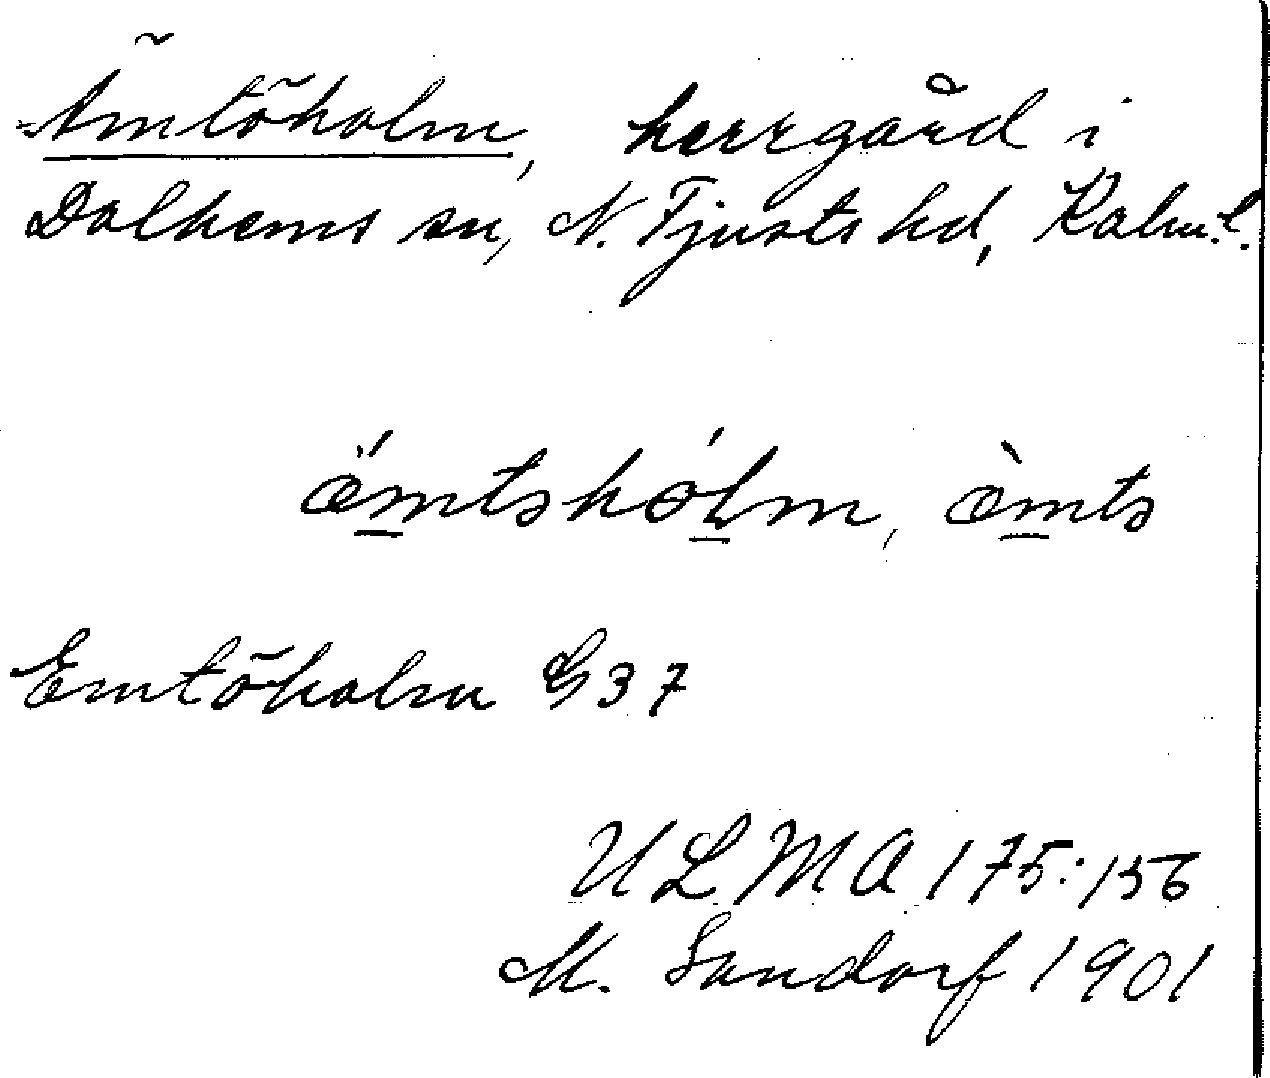 Ämtöholm, herrgård i
Dalhems sn, N. Tjusts hd, Kalm. l.
ämtshólm, æ̀mts
Emtöholm G 37
ULMA 175:156
M. Sandorf 1901